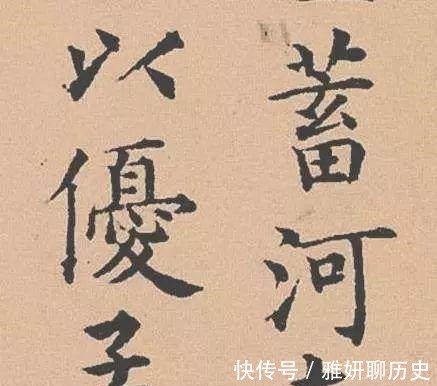 蓄河
以優子
快传号/雅妍聊历史